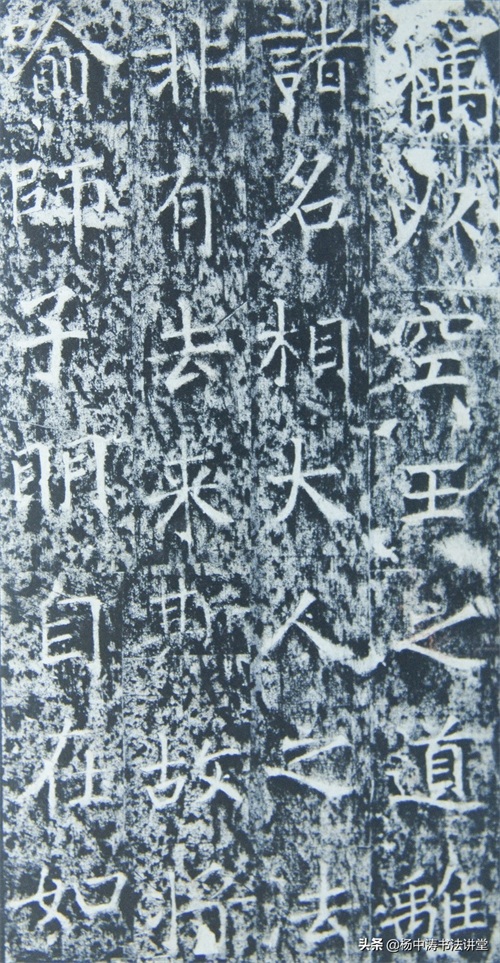 竊以空王之道離
諸名相大人之法
非有去來斯故將
喻師子明自在如
头条 @杨中涛书法讲堂